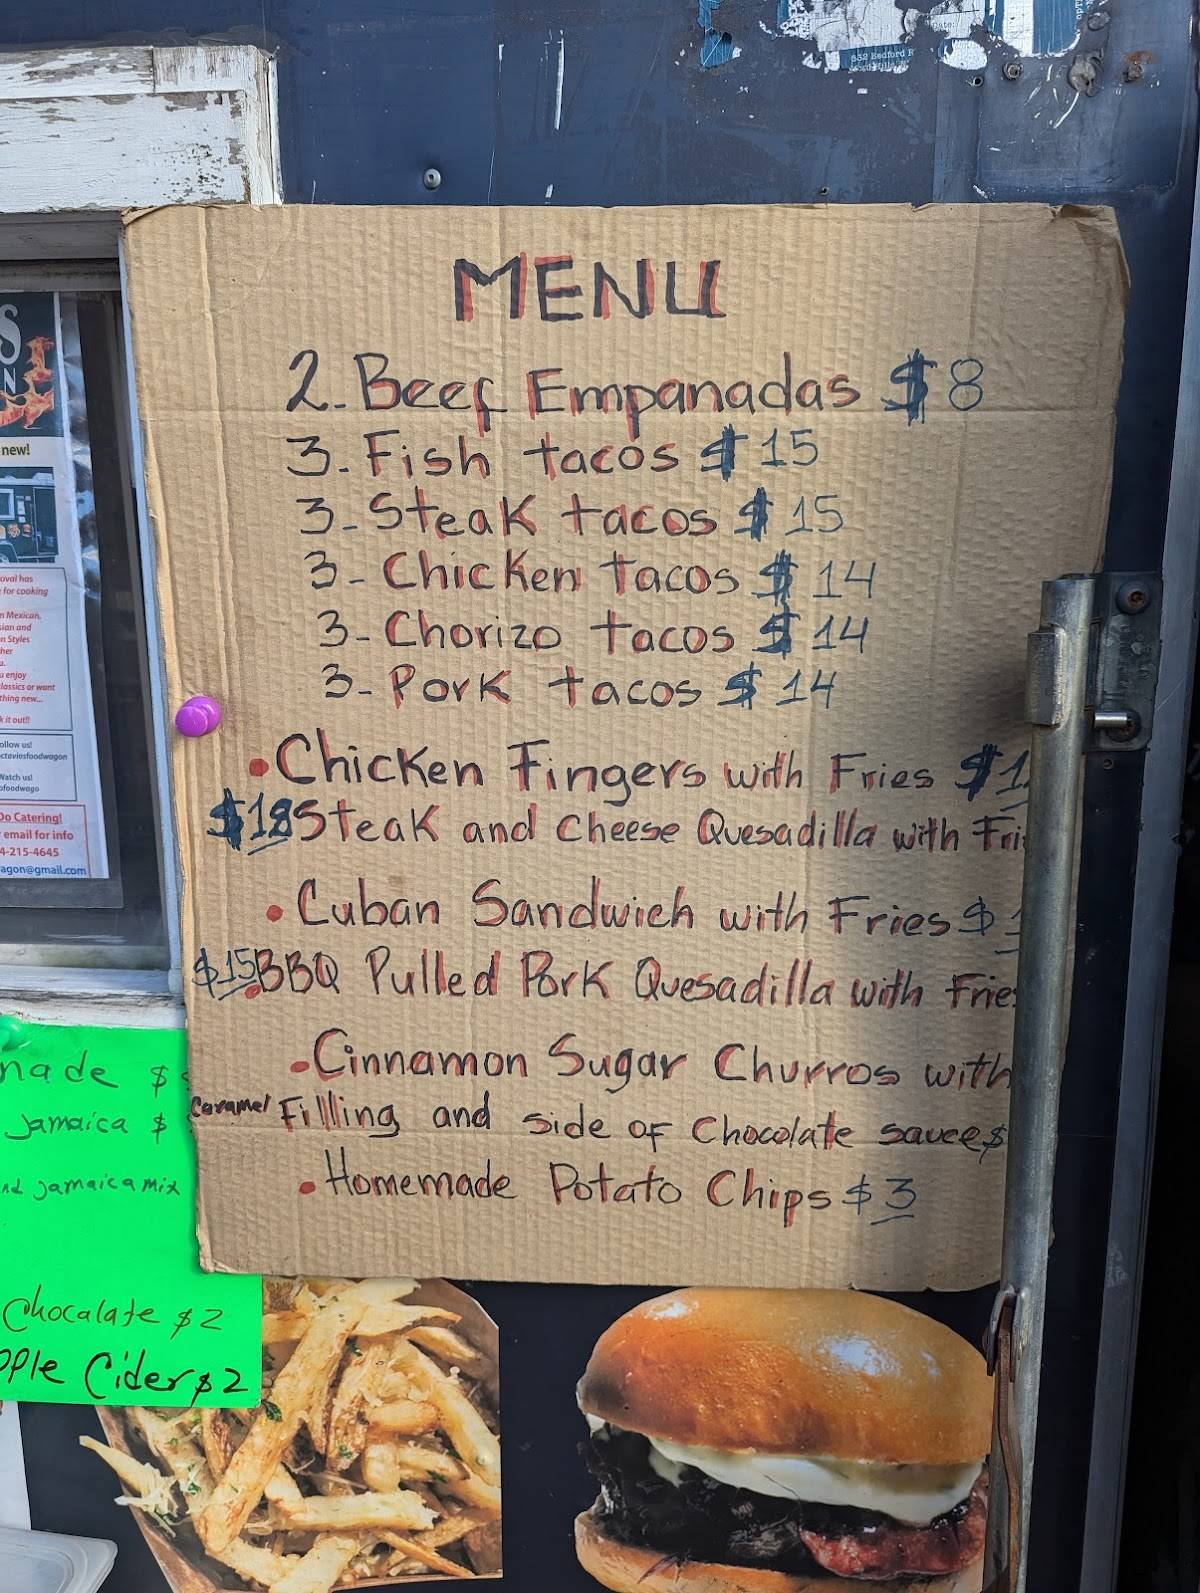 532 Bedford R
MENU
2. Beef Empanadas $8
3. Fish tacos $15
3- Steak tacos $15
3- Chicken tacos $14
3- Chorizo tacos $14
3- Pork tacos $14
• Chicken Fingers with Fries $1
$18 Steak and cheese Quesadilla with Fri
• Cuban Sandwich with Fries $1
$15 BBQ Pulled Pork Quesadilla with Frie
• Cinnamon Sugar Churros with
Caramel Filling and side of Chocolate sauce $
• Homemade Potato Chips $3
S
N
new!
oval has
for cooking
n Mexican,
sian and
n Styles
her
u.
u enjoy
lassics or want
thing new...
k it out!!
ollow us!
ctaviosfoodwagon
Watch us!
ofoodwago
Do Catering!
email for info
4-215-4645
agon@gmail.com
nade $
Jamaica $
nd Jamaica mix
Chocalate $2
pple Cider $2